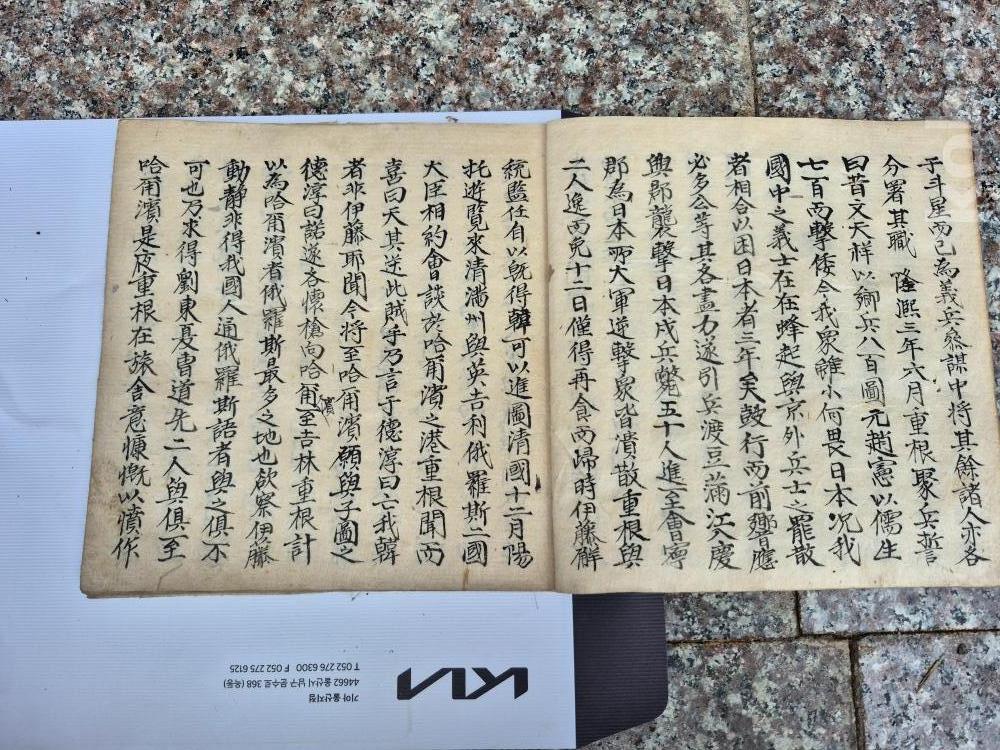 于斗星而已為義兵叅謀中將其餘諸人亦各
分署其職 隆熙三年六月重根聚兵誓
曰昔文天祥以鄉兵八百圖元趙憲以儒生
七百而擊倭今我眾雖小何畏日本況我
國中之義士在在蜂起與京外兵士之罷散
者相合以困日本者三年矣鼓行而前響應
必多公等其各盡力遂引兵渡豆滿江入慶
興郡襲擊日本戍兵斃五十人進至會寧
郡為日本所大軍逆擊眾皆潰散重根與
二人逸而免十二日僅得再食而歸時伊藤觧
統監任自以既得韓可以進圖清國十二月陽
托遊覽來清滿州與英吉利俄羅斯二國
大臣相約會談於哈甭濱之港重根聞而
喜曰天其送此賊乎乃言于德淳曰亡我韓
者非伊藤耶聞今將至哈甭濱願與子圖之
德淳曰諾遂各懷槍向哈甭濱至吉林重根計
以為哈甭濱者俄羅斯最多之地也欲察伊藤
動靜非得我國人通俄羅斯語者與之俱不
可也乃求得劉東夏曺道先二人與俱至
哈甭濱是夜重根在旅舍意慷慨以憤作
KIA
기아 울산지점
44662 울산시 남구 문수로 368 (옥동)
T 052 276 6300 F 052 275 6125